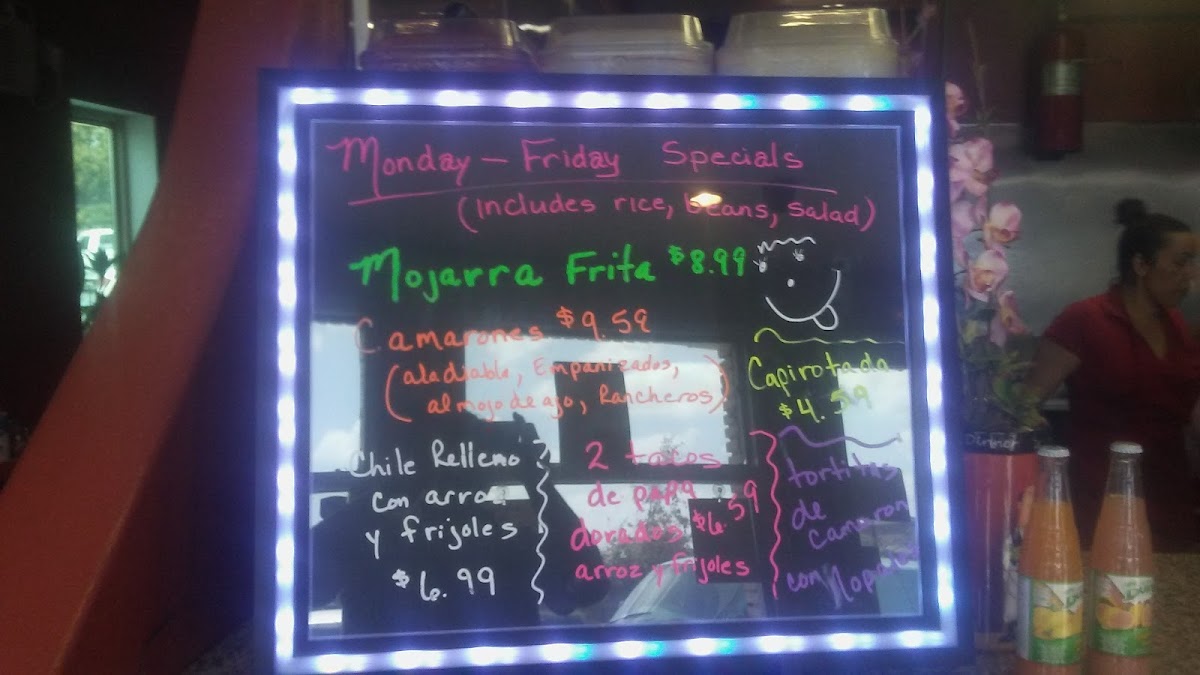 Monday - Friday Specials
(includes rice, beans, salad)
Mojarra Frita $8.99
Camarones $9.59
(aladiabla, Empanizados,
al mojo de ajo, Rancheros)
Capirotada
$4.59
Chile Relleno
con arroz
y frijoles
$6.99
2 tacos
de papa
dorados $6.59
arroz y frijoles
tortitas
de
camaron
con Nopales
Dinner